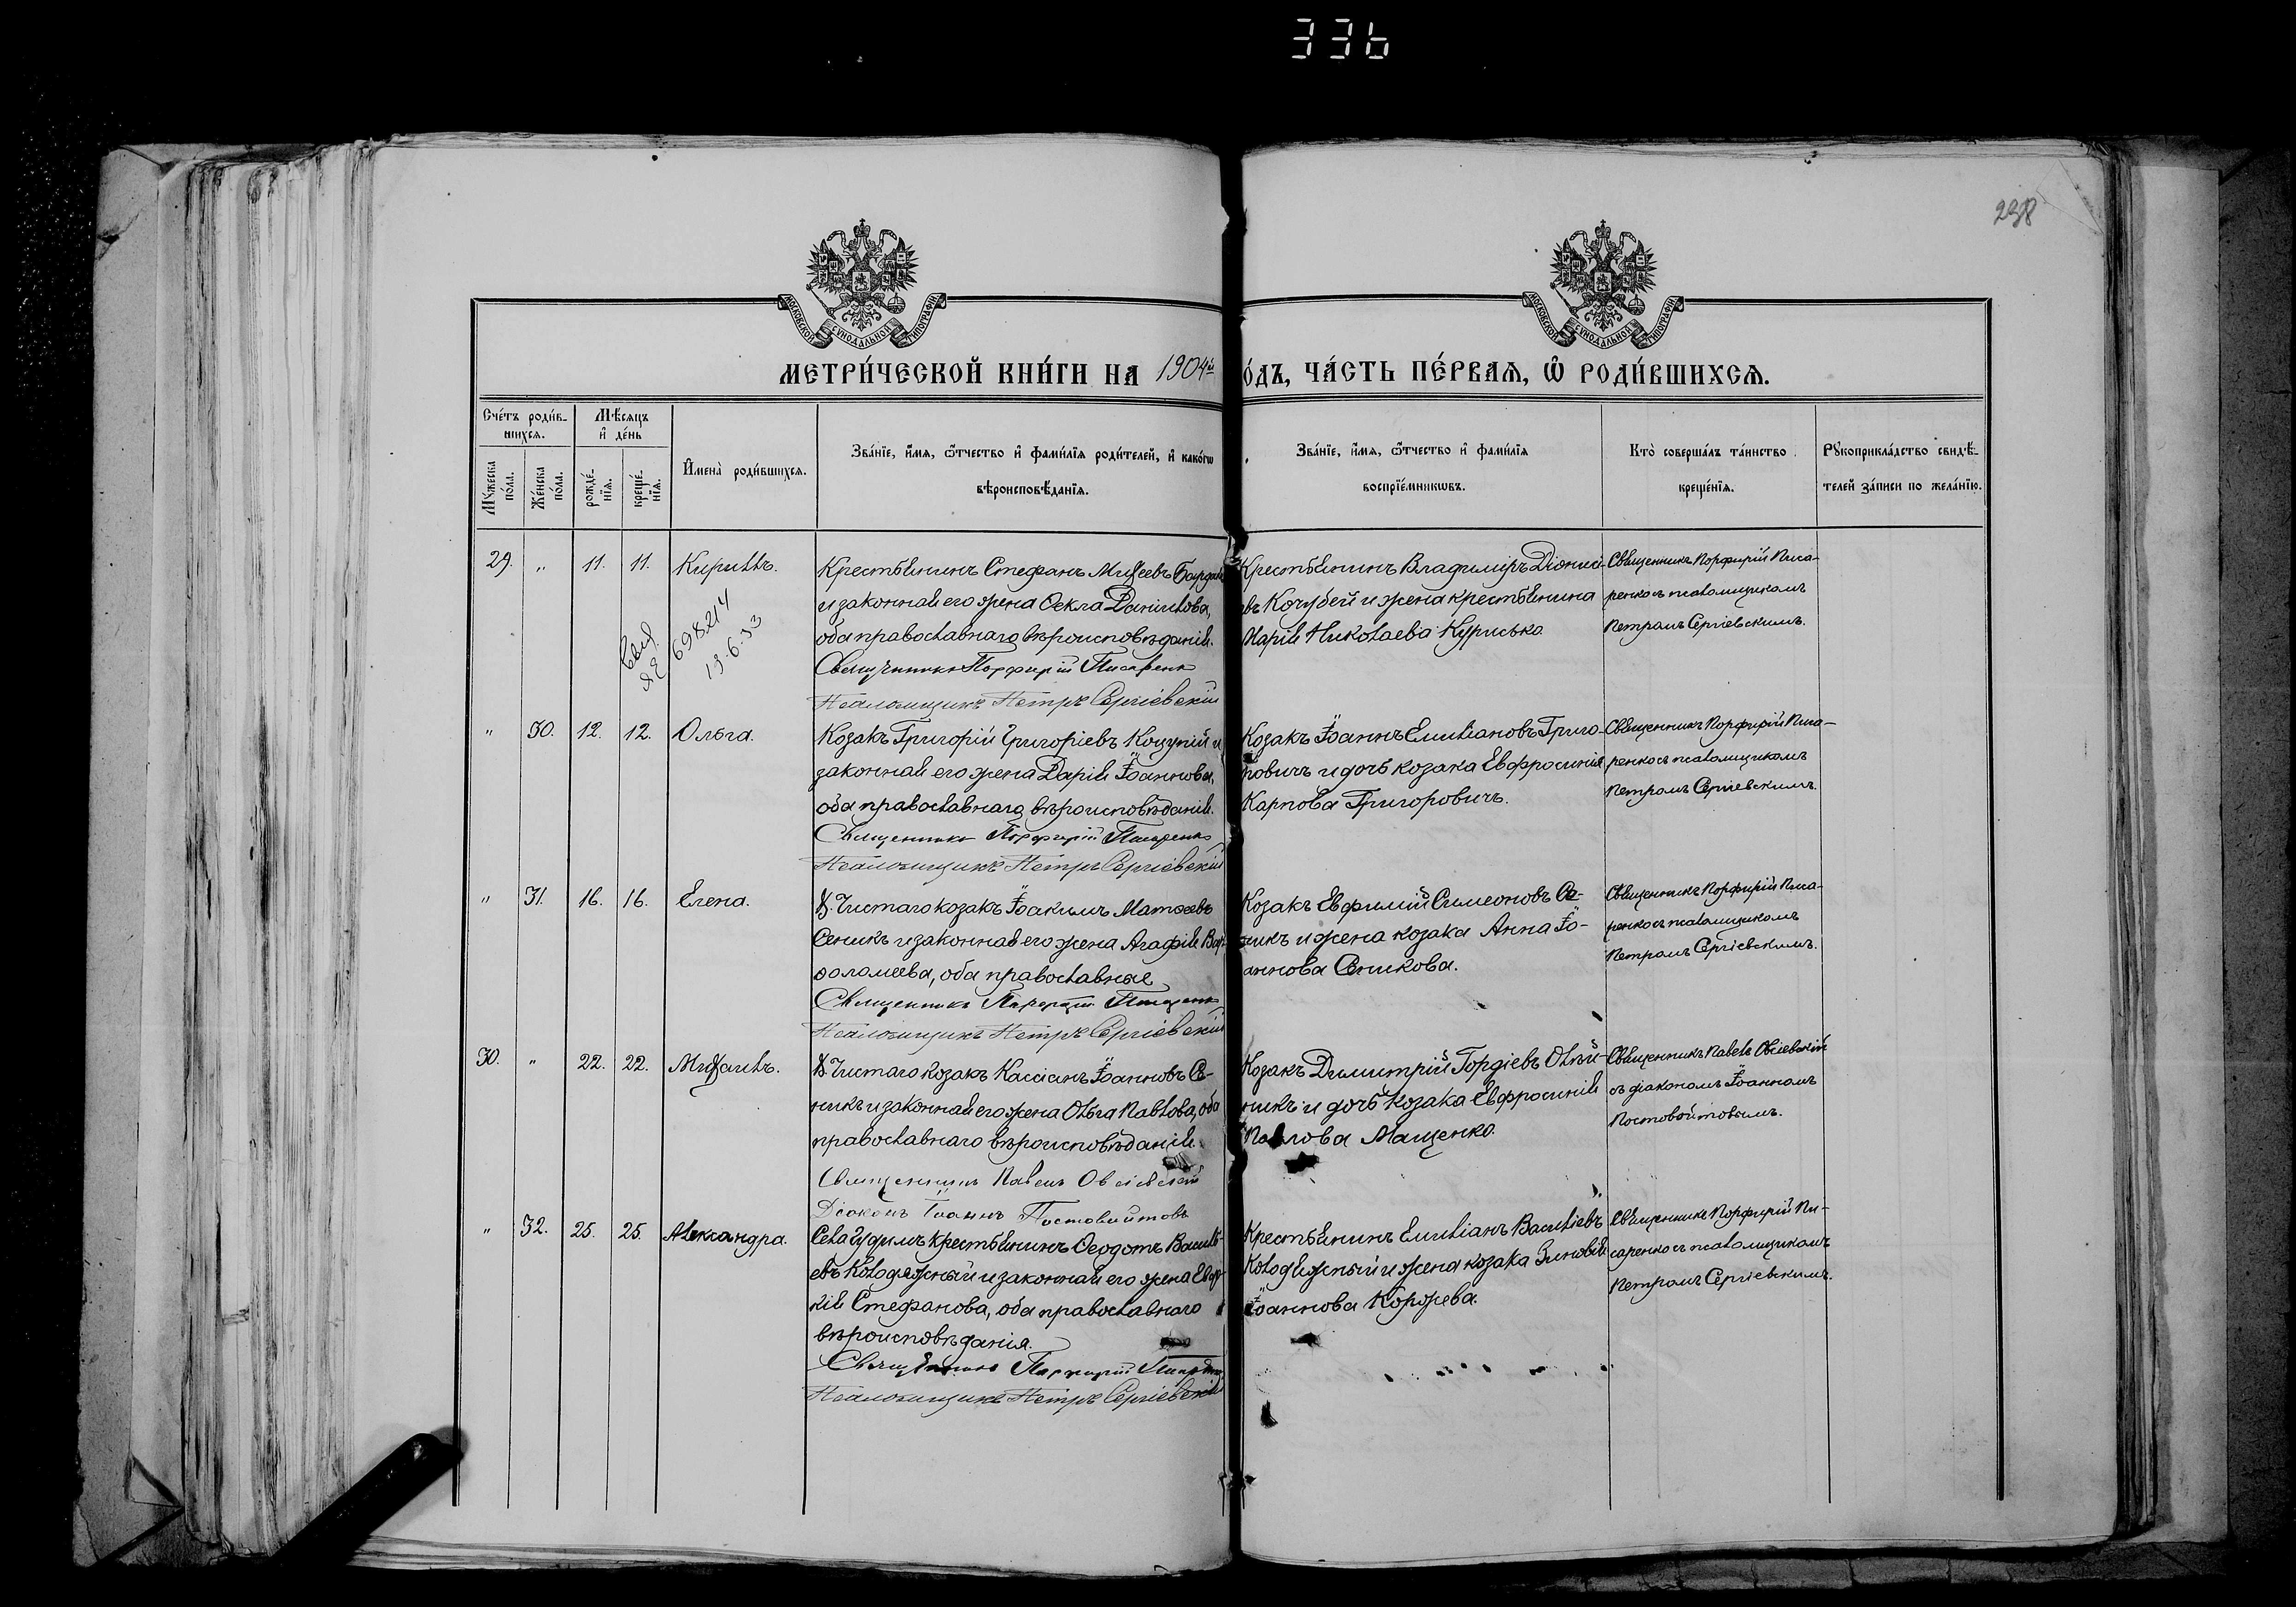 336
298
МОСКОВСКОЙ СУНОДАЛЬНОЙ ТИПОГРАФІИ
МОСКОВСКОЙ СУНОДАЛЬНОЙ ТИПОГРАФІИ
МЕТРИ́ЧЕСКОЙ КНИ́ГИ НА 1904й
О́ДЪ, ЧА́СТЬ ПЕ́РВАѦ, Ѡ РОДИ́ВШИХСѦ.
Сче́тъ роди́в-
шихсѧ.
Мѣ́сѧцъ
и де́нь
Мꙋ́жеска
по́ла.
Же́нска
пола.
рожде́-
нїѧ.
креще́-
нїѧ.
Имена̀ роди́вшихсѧ.
Зва́нїе, и́мѧ, ѻ́тчество и фами́лїѧ роди́телей, и како́гѡ
вѣроисповѣ́данїѧ.
Зва́нїе, и́мѧ, ѻ́тчество и фами́лїѧ
воспрїе́мникѡвъ.
Кто̀ соверша́лъ та́инство
креще́нїѧ.
Рꙋкоприкла́дство свидѣ́-
телей за́писи по жела́нїю.
29. " 11. 11. Кириллъ.
Крестьянинъ Стефанъ Михеевъ
и законная его жена Ѳекла Даниилова,
оба православнаго вѣроисповѣданія.
Священникъ Порфирій Писаренко
Псаломщикъ Петръ Сергіевскій
698214
13.6.93
Крестьянинъ Владимиръ Діонисі-
евъ Кочубей и жена крестьянина
Марія Николаева Курисько.
Священникъ Порфирій Писа-
ренко съ псаломщикомъ
Петромъ Сергіевскимъ.
" 30. 12. 12. Ольга.
Козакъ Григорій Григоріевъ Коцупій и
законная его жена Дарія Іоаннова,
оба православнаго вѣроисповѣданія.
Священникъ Порфирій Писаренко
Псаломщикъ Петръ Сергіевскій
Козакъ Іоаннъ Емиліановъ Григо-
ровичъ и дочь козака Евфросинія
Карпова Григоровичъ.
Священникъ Порфирій Писа-
ренко съ псаломщикомъ
Петромъ Сергіевскимъ.
" 31. 16. 16. Елена.
Х. Чистаго козакъ Іоакимъ Матѳеевъ
Сеникъ и законная его жена Агафія Вар-
ѳоломеева, оба православные
Священникъ Порфирій Писаренко
Псаломщикъ Петръ Сергіевскій
Козакъ Евфимій Симеоновъ Се-
никъ и жена козака Анна Іо-
аннова Сеникова.
Священникъ Порфирій Писа-
ренко съ псаломщикомъ
Петромъ Сергіевскимъ.
30. " 22. 22. Михаилъ.
Х. Чистаго козакъ Кассіанъ Іоанновъ Се-
никъ и законная его жена Ольга Павлова, оба
православнаго вѣроисповѣданія.
Священникъ Павелъ Овсіевскій
Діаконъ Іоаннъ Постовойтовъ
Козакъ Димитрій Гордіевъ Олѣй-
никъ и дочь козака Евфросинія
Павлова Мащенко.
Священникъ Павелъ Овсіевскій
съ діакономъ Іоанномъ
Постовойтовымъ.
" 32. 25. 25. Александра.
Села Гудимъ крестьянинъ Ѳеодотъ Василі-
евъ Колодяжный и законная его жена
Стефанова, оба православнаго
вѣроисповѣданія.
Священникъ Порфирій Писаренко
Псаломщикъ Петръ Сергіевскій
Крестьянинъ Емиліанъ Василіевъ
Колодяжный и жена козака Зиновія
Іоаннова Коржева.
Священникъ Порфирій Пи-
саренко съ псаломщикомъ
Петромъ Сергіевскимъ.